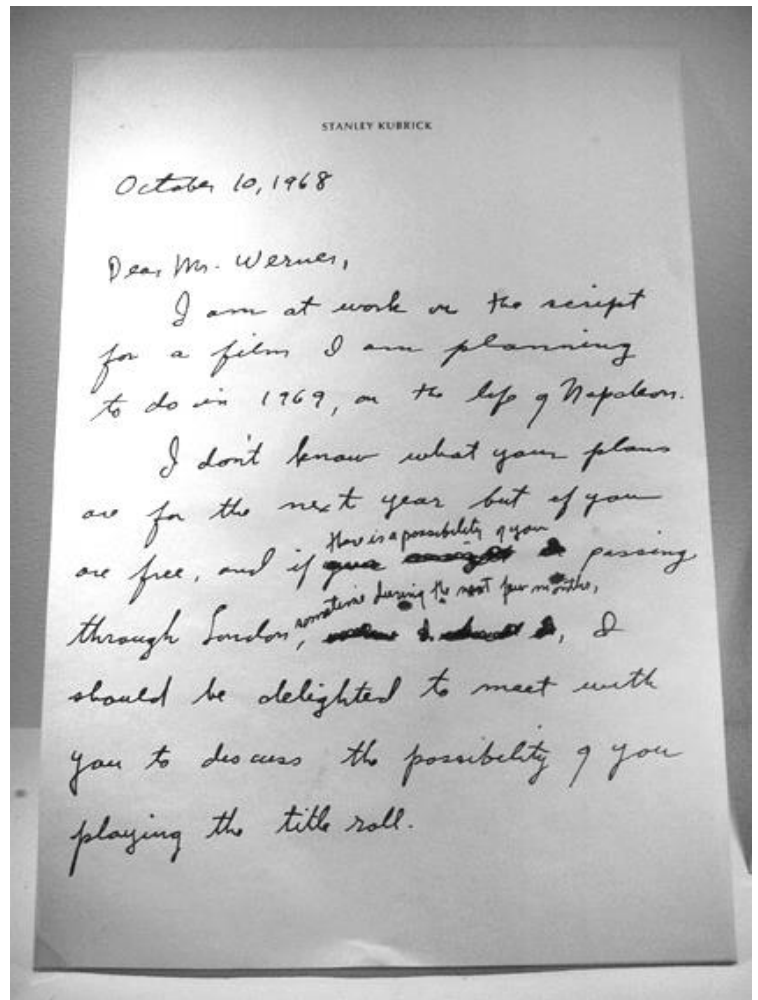 STANLEY KUBRICK
October 10, 1968
Dear Mr. Werner,
I am at work on the script
for a film I am planning
to do in 1969, on the life of Napoleon.
I don't know what your plans
are for the next year but if you
there is a possibility of you
are free, and if passing
sometime during the next few months,
through London, , I
should be delighted to meet with
you to discuss the possibility of you
playing the title roll.